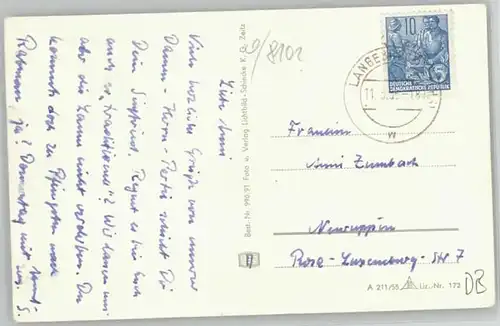 Liebe Anni
Viele herzliche Grüße von unserer
Damen-Herren-Partie schickt Dir
Dein Siegfried. Regnet es bei Euch
auch so "kreditiinne"? Wir lassen uns
aber die Laune nicht verderben. Du
kommst doch zu Pfingsten nach
Rabman, ja? Donnerstag mit
9/8102
Best.-Nr. 990/91 Foto u. Verlag Lichtbild-Schincke K. G. Zeitz
LANGEB
11.
-18
10
DEUTSCHE
DEMOKRATISCHE REPUBLIK
w
Fräulein
Anni Zumbach
Neuruppin
Rosa-Luxemburg-Str 7
A 211/55 Lic.-Nr. 172
DB